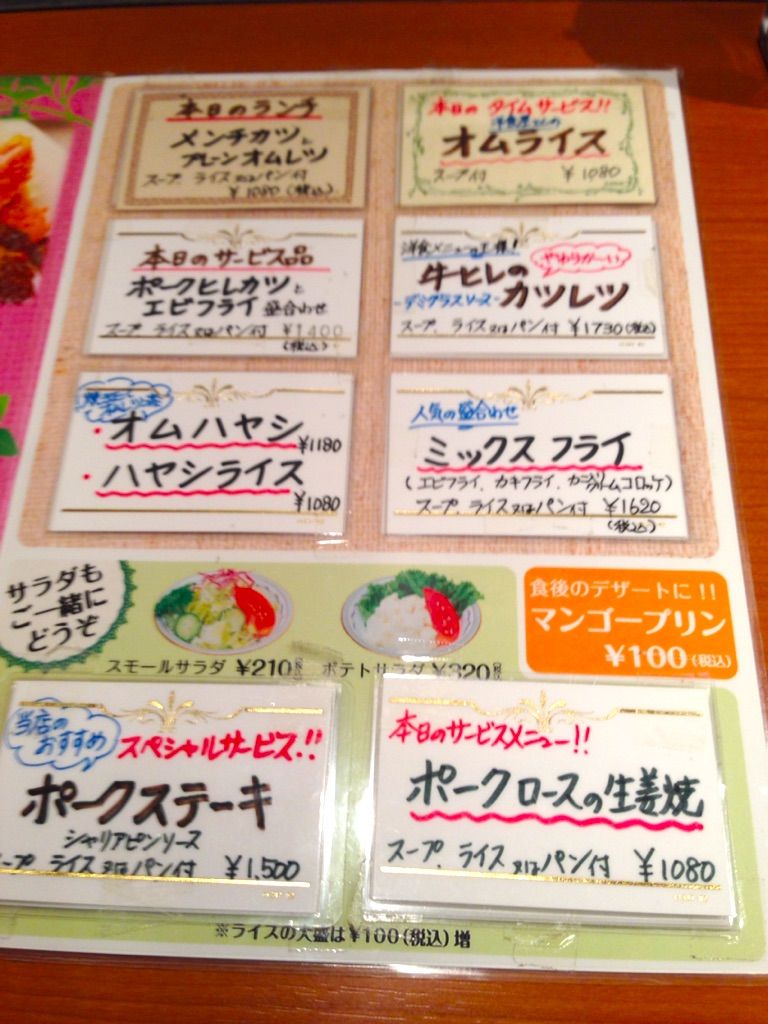 本日のランチ
メンチカツと
プレーンオムレツ
スープ ライス又はパン付
¥1080(税込)
本日の タイムサービス!!
洋食屋さんの
オムライス
スープ付 ¥1080
本日のサービス品
ポークヒレカツと
エビフライ 盛合わせ
スープ ライス又はパン付 ¥1400
(税込)
洋食メニューの王様!
やわらか〜い
牛ヒレの
-デミグラスソース- カツレツ
スープ、ライス又はパン付 ¥1730(税込)
・オムハヤシ ¥1180
・ハヤシライス
¥1080
人気の盛合わせ
ミックスフライ
(エビフライ、カキフライ、カニクリームコロッケ)
スープ、ライス又はパン付 ¥1620
(税込)
サラダも
ご一緒に
どうぞ
スモールサラダ ¥210
ポテトサラダ ¥320
食後のデザートに!!
マンゴープリン
¥100(税込)
当店の
おすすめ
スペシャルサービス!!
ポークステーキ
シャリアピンソース
スープ ライス又はパン付 ¥1,500
本日のサービスメニュー!!
ポークロースの生姜焼
スープ、ライス又はパン付 ¥1080
※ライスの大盛は¥100(税込)増